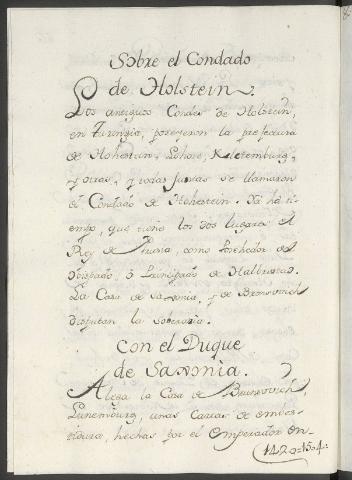 Sobre el Condado
de Holstein.
Los antiguos Condes de Holstein,
en Turingia, poseyeron la prefectura
de Hohestein, Lohore, Kletemburg,
y otras, y todas juntas se llamaron
el Condado de Hohestein. Ya ha ti-
empo, que tiene los dos lugares el
Rey de Prusia, como Posehedor del
Obispado, ó Principado de Halberstad.
La Casa de Saxonia, y de Bronsvvich
disputan la soberania.
Con el Duque
de Saxonia.
Alega la Casa de Brunsvvich
Lunemburg, unas Cartas de embes-
tidura, hechas por el emperador en-
1420=1504=